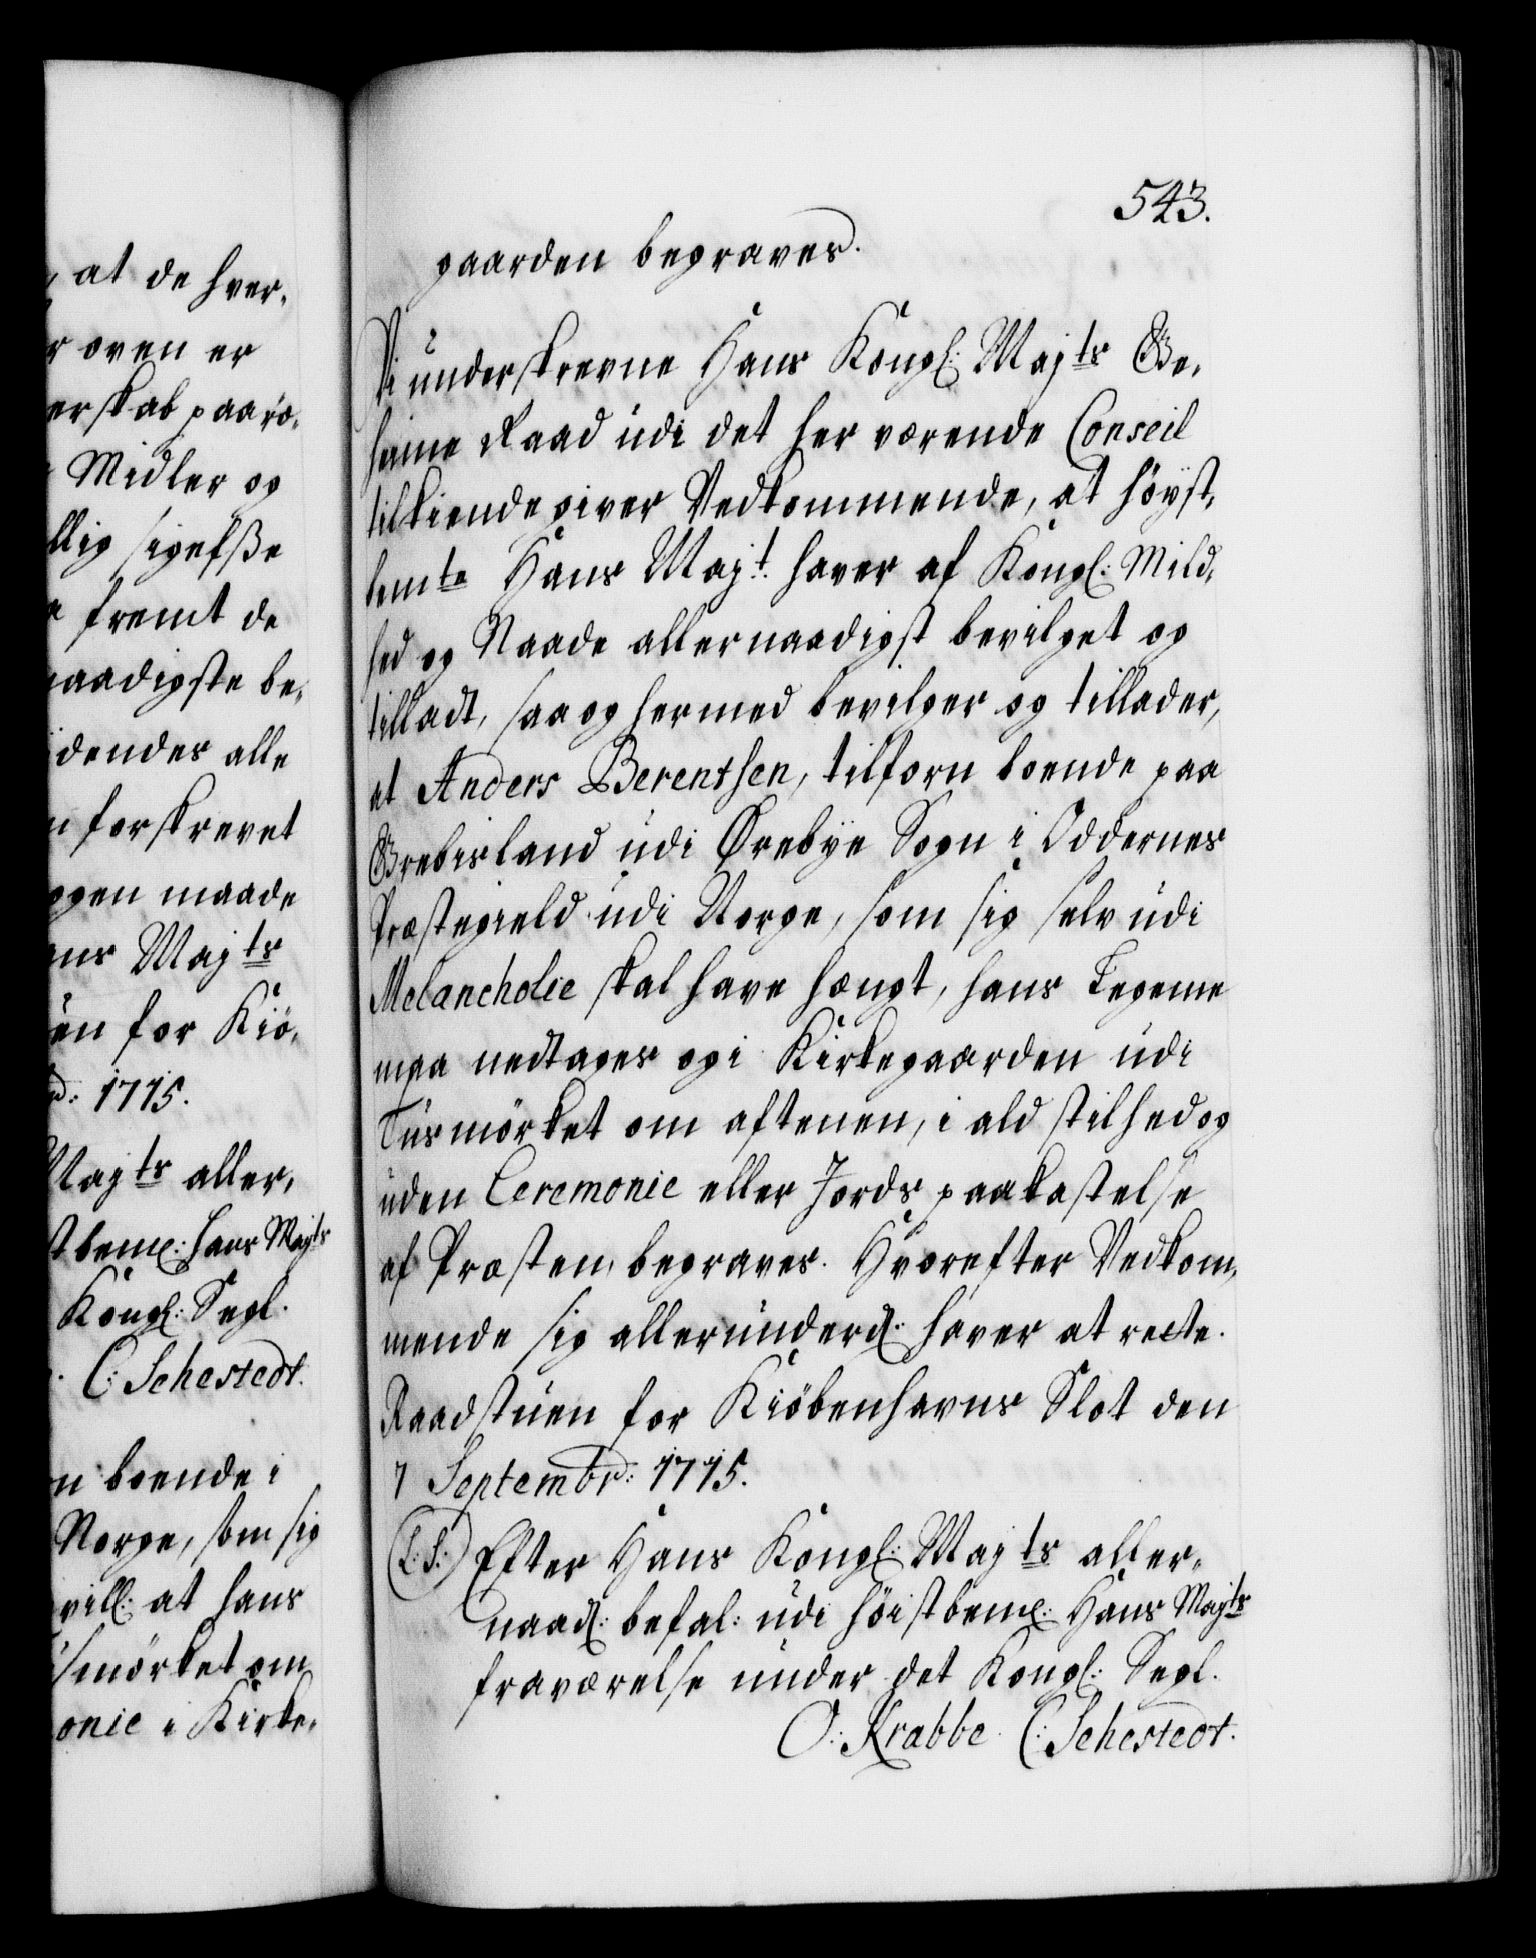 at de hver,
r oven er
erskab paarö,
Midler og
llig sigelsse
fremt de
naadigste be,
dendes alle
forskrevet
ggen maade
ns Majts
üen for Kiö,
1715.
Majts aller,
stbem: hans Majts
Kongl: Segl.
C: Sehestedt.
n boende i
Norge, som sig
vill: at hans
ismörket om
onie i Kirke,
543.
gaarden begraves.
Vi underskrevne Hans Kongl: Majts Ge,
heime Raad udi det her værende Conseil
tilkiendegiver Vedkommende, at höyst,
bemte Hans Majt. haver af Kongl: Mild,
hed og Naade allernaadigst bevilget og
tilladt, saa og hermed bevilger og tillader,
at Anders Berentsen, tilforn boende paa
Grebisland udi Örebye Sogn i Oddernes
Præstegield udi Norge, som sig selv udi
Melancholie skal have hængt, hans Legeme
maa nedtages og i Kirkegaarden udi
Tusmörket om aftenen, i ald stilhed og
uden Ceremonie eller Jords paakastelse
af Præsten, begraves. Hvorefter Vedkom,
mende sig allerunderd: haver at rette.
Raadstüen for Kiöbenhavns Slot den
7 Septembr: 1715.
(L:S:) Efter Hans Kongl: Majts aller,
naad: befal: udi höistbem: Hans Majts
fraværelse under det Kongl: Segl.
O: Krabbe. C: Sehestedt.